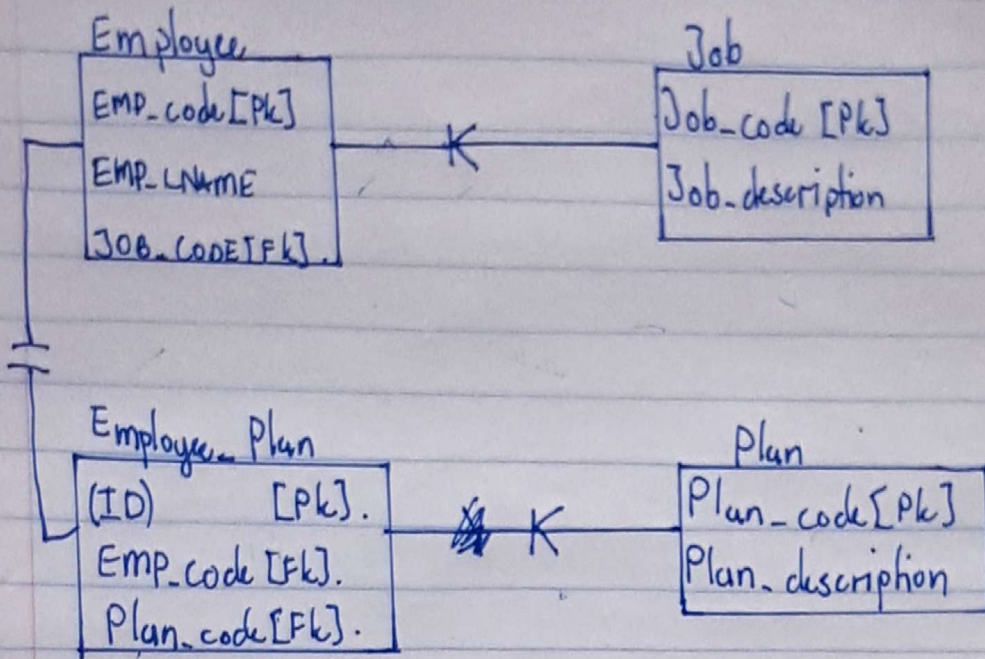 Employee
EMP_code [Pk]
EMP_LNAME
JOB_CODE [Fk].
Job
Job_code [Pk]
Job_description
Employee_Plan
(ID) [Pk].
Emp_code [Fk].
Plan_code [Fk].
Plan
Plan_code [Pk]
Plan_description